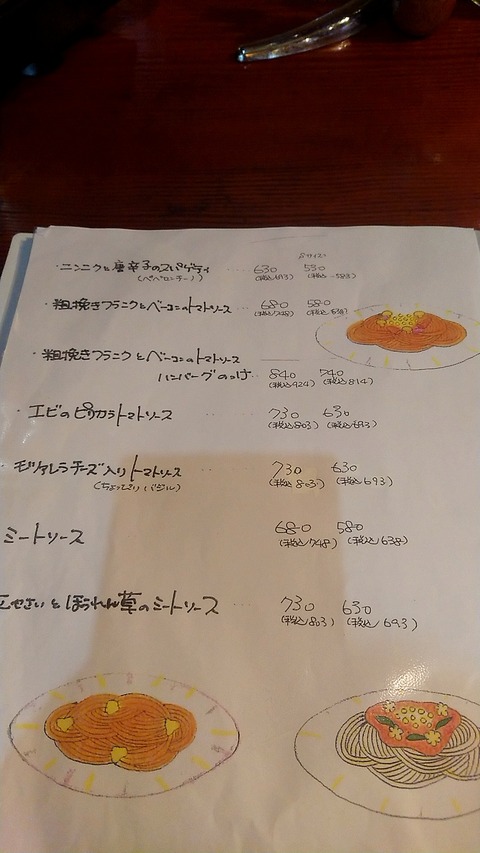 Sサイズ
・ニンニクと唐辛子のスパゲティ ‥‥ 630 530
(ペペロンチーノ) (税込693) (税込583)
・粗挽きフランクとベーコンのトマトソース ‥ 680 580
(税込748) (税込638)
・粗挽きフランクとベーコンのトマトソース
ハンバーグのっけ‥ 840 740
(税込924) (税込814)
・エビのピリカラトマトソース ‥‥ 730 630
(税込803) (税込693)
・モツアレラチーズ入りトマトソース ‥‥ 730 630
(ちょっぴりバジル) (税込803) (税込693)
ミートソース 680 580
(税込748) (税込638)
とほうれん草のミートソース ‥‥ 730 630
(税込803) (税込693)